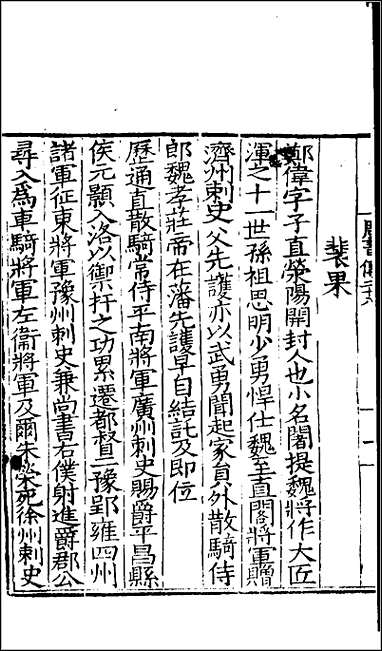 裴果
鄭偉字子直滎陽開封人也小名闍提魏將作大匠
渾之十一世孫祖思明少勇悍仕魏至直閤將軍贈
濟州刺史父先護亦以武勇聞起家員外散騎侍
郎魏孝莊帝在藩先護早自結託及即位
歷通直散騎常侍平南將軍廣州刺史賜爵平昌縣
侯元顥入洛以禦扞之功累遷都督二豫郢雍四州
諸軍征東將軍豫州刺史兼尚書右僕射進爵郡公
尋入爲車騎將軍左衞將軍及爾朱榮死徐州刺史